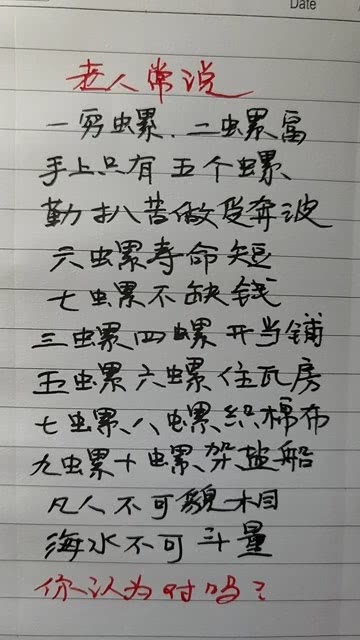 Date
老人常说
一穷螺、二螺富
手上只有五个螺
勤扒苦做受奔波
六螺寿命短
七螺不缺钱
三螺四螺开当铺
五螺六螺住瓦房
七螺、八螺织棉布
九螺十螺、架盐船
凡人不可貌相
海水不可斗量
你认为对吗？